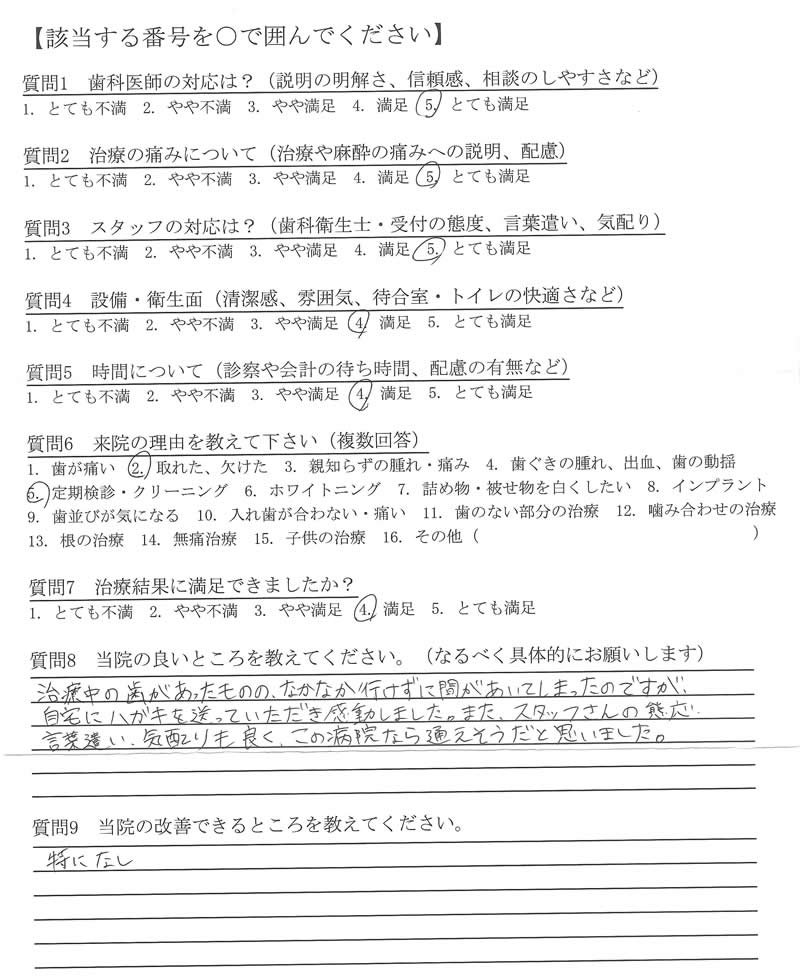 【該当する番号を○で囲んでください】
質問1 歯科医師の対応は？（説明の明解さ、信頼感、相談のしやすさなど）
1. とても不満 2. やや不満 3. やや満足 4. 満足 5. とても満足
質問2 治療の痛みについて（治療や麻酔の痛みへの説明、配慮）
1. とても不満 2. やや不満 3. やや満足 4. 満足 5. とても満足
質問3 スタッフの対応は？（歯科衛生士・受付の態度、言葉遣い、気配り）
1. とても不満 2. やや不満 3. やや満足 4. 満足 5. とても満足
質問4 設備・衛生面（清潔感、雰囲気、待合室・トイレの快適さなど）
1. とても不満 2. やや不満 3. やや満足 4. 満足 5. とても満足
質問5 時間について（診察や会計の待ち時間、配慮の有無など）
1. とても不満 2. やや不満 3. やや満足 4. 満足 5. とても満足
質問6 来院の理由を教えて下さい（複数回答）
1. 歯が痛い 2. 取れた、欠けた 3. 親知らずの腫れ・痛み 4. 歯ぐきの腫れ、出血、歯の動揺
5. 定期検診・クリーニング 6. ホワイトニング 7. 詰め物・被せ物を白くしたい 8. インプラント
9. 歯並びが気になる 10. 入れ歯が合わない・痛い 11. 歯のない部分の治療 12. 噛み合わせの治療
13. 根の治療 14. 無痛治療 15. 子供の治療 16. その他（ ）
質問7 治療結果に満足できましたか？
1. とても不満 2. やや不満 3. やや満足 4. 満足 5. とても満足
質問8 当院の良いところを教えてください。（なるべく具体的にお願いします）
治療中の歯があったものの、なかなか行けずに間があいてしまったのですが、
自宅にハガキを送っていただき感動しました。また、スタッフさんの態応・
言葉遣い、気配りも良く、この病院なら通えそうだと思いました。
質問9 当院の改善できるところを教えてください。
特になし